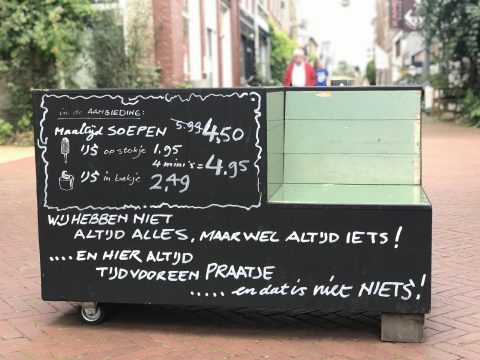 in de AANBIEDING:
Maaltijd SOEPEN 5.99 4,50
IJS op stokje 1,95
4 mini's = 4.95
IJS in bakje 2,49
WIJ HEBBEN NIET
ALTIJD ALLES, MAAR WEL ALTIJD IETS!
....EN HIER ALTIJD
TIJD VOOR EEN PRAATJE
..... en dat is niet NIETS!